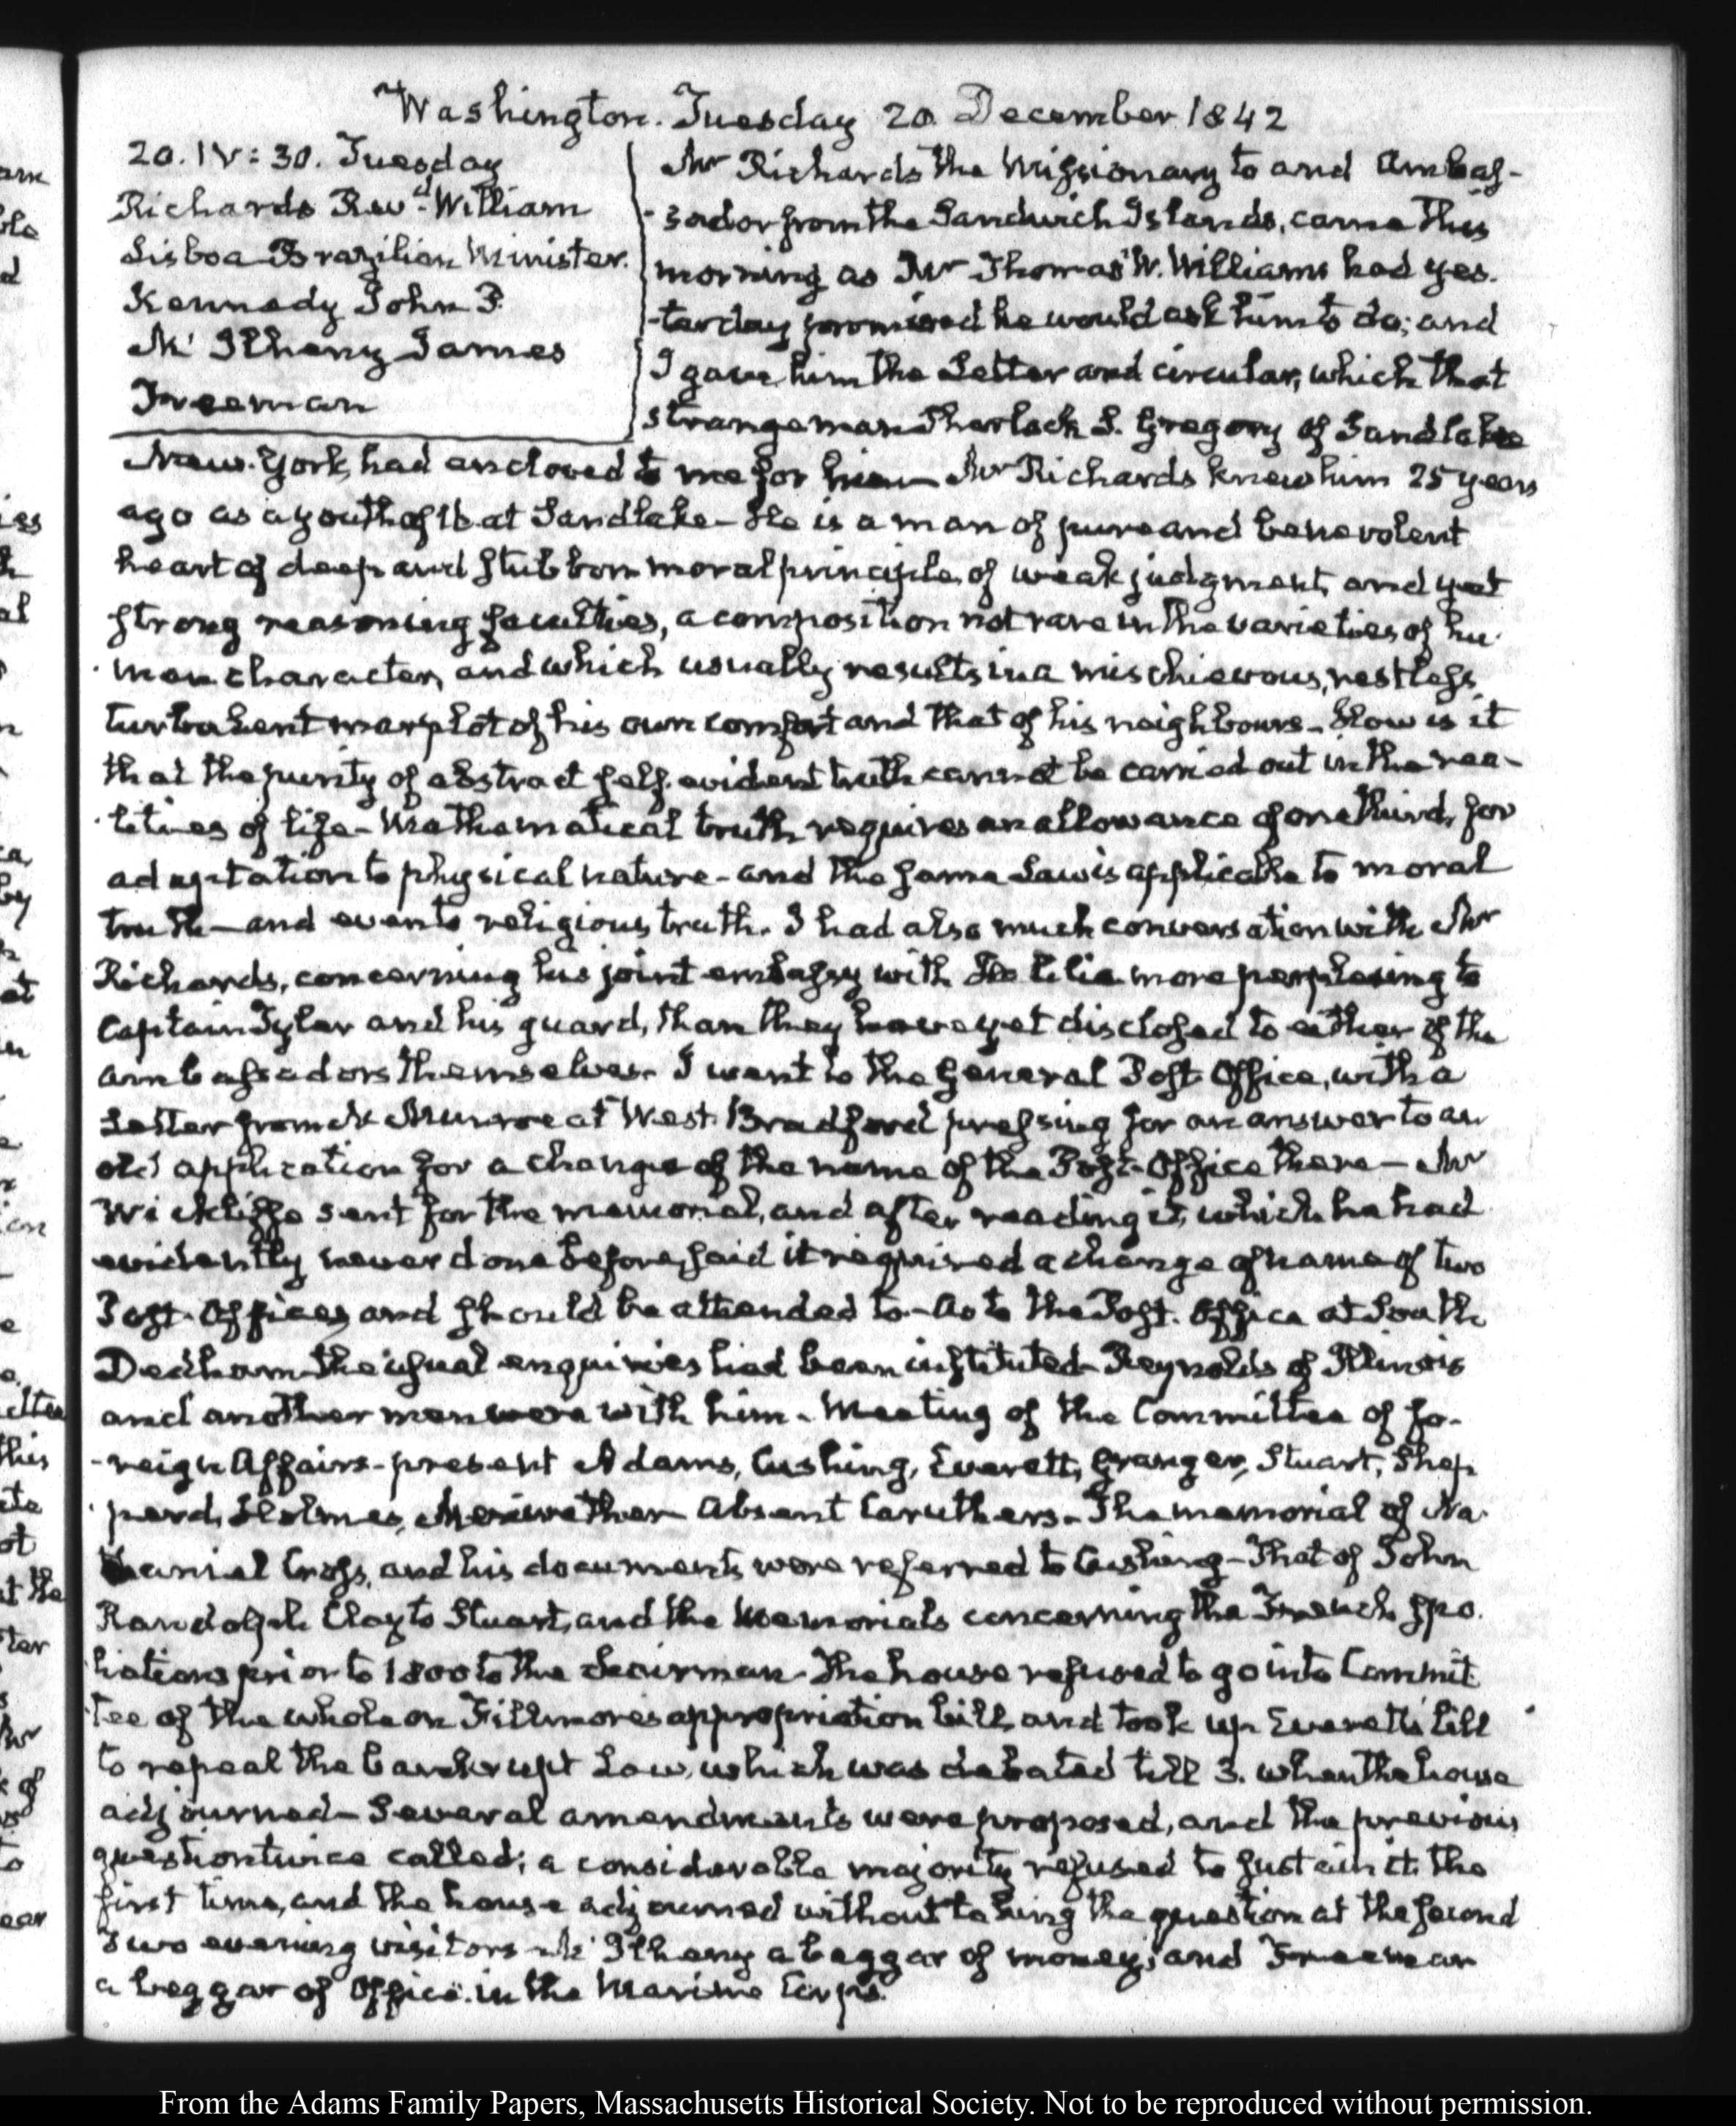 Washington. Tuesday 20. December 1842
20. IV: 30. Tuesday
Richards Revd. William
Lisboa Brazilian Minister.
Kennedy John P.
McIlheny James
Freeman
Mr Richards the Missionary to and Ambas-
-sador from the Sandwich Islands, came this
morning as Mr Thomas W. Williams had yes-
-terday promised he would ask him to do; and
I gave him the Letter and circular, which that
strange man Sherlock S. Gregory of Sandlake
New-York, had enclosed to me for him— Mr Richards knew him 25 years
ago as a youth of 16. at Sandlake— He is a man of pure and benevolent
heart of deep and stubborn moral principle, of weak judgment, and yet
strong reasoning faculties, a composition not rare in the varieties of hu-
-man character, and which usually results in a mischievous, restless
turbulent marplot of his own comfort and that of his neighbours— How is it
that the purity of abstract self-evident truth cannot be carried out in the rea-
-lities of life— Mathematical truth requires an allowance of one third, for
adaptation to physical nature— and the same Law is applicable to moral
truth— and even to religious truth. I had also much conversation with Mr
Richards, concerning his joint embassy with Haalilio more perplexing to
Captain Tyler and his guard, than they have yet disclosed to either of the
ambassadors themselves. I went to the General Post-Office, with a
Letter from Mr Munroe at West Bradford pressing for an answer to an
old application for a change of the name of the Post-Office there— Mr
Wickliffe sent for the memorial, and after reading it, which he had
evidently never done before, said it required a change of name of two
Post-Offices and should be attended to— As to the Post-Office at South
Dedham the usual enquiries had been instituted— Reynolds of Illinois
and another man were with him— Meeting of the Committee of fo-
-reign Affairs— present Adams, Cushing, Everett, Granger, Stuart, Shep-
-perd, Holmes, Meriwether— Absent Caruthers— The memorial of Na-
thaniel Cross, and his documents were referred to Cushing— That of John
Randolph Clay to Stuart, and the Memorials concerning the French spo-
liations prior to 1800 to the Chairman— The house refused to go into Commit-
-tee of the whole on Fillmore's appropriation bill, and took up Everett's bill
to repeal the bankrupt Law, which was debated till 3. when the house
adjourned— Several amendments were proposed, and the previous
question twice called; a considerable majority refused to sustain it the
first time, and the house adjourned without taking the question at the second
Two evening visitors McIlheny a beggar of money, and Freeman
a beggar of Office in the Marine Corps.
From the Adams Family Papers, Massachusetts Historical Society. Not to be reproduced without permission.